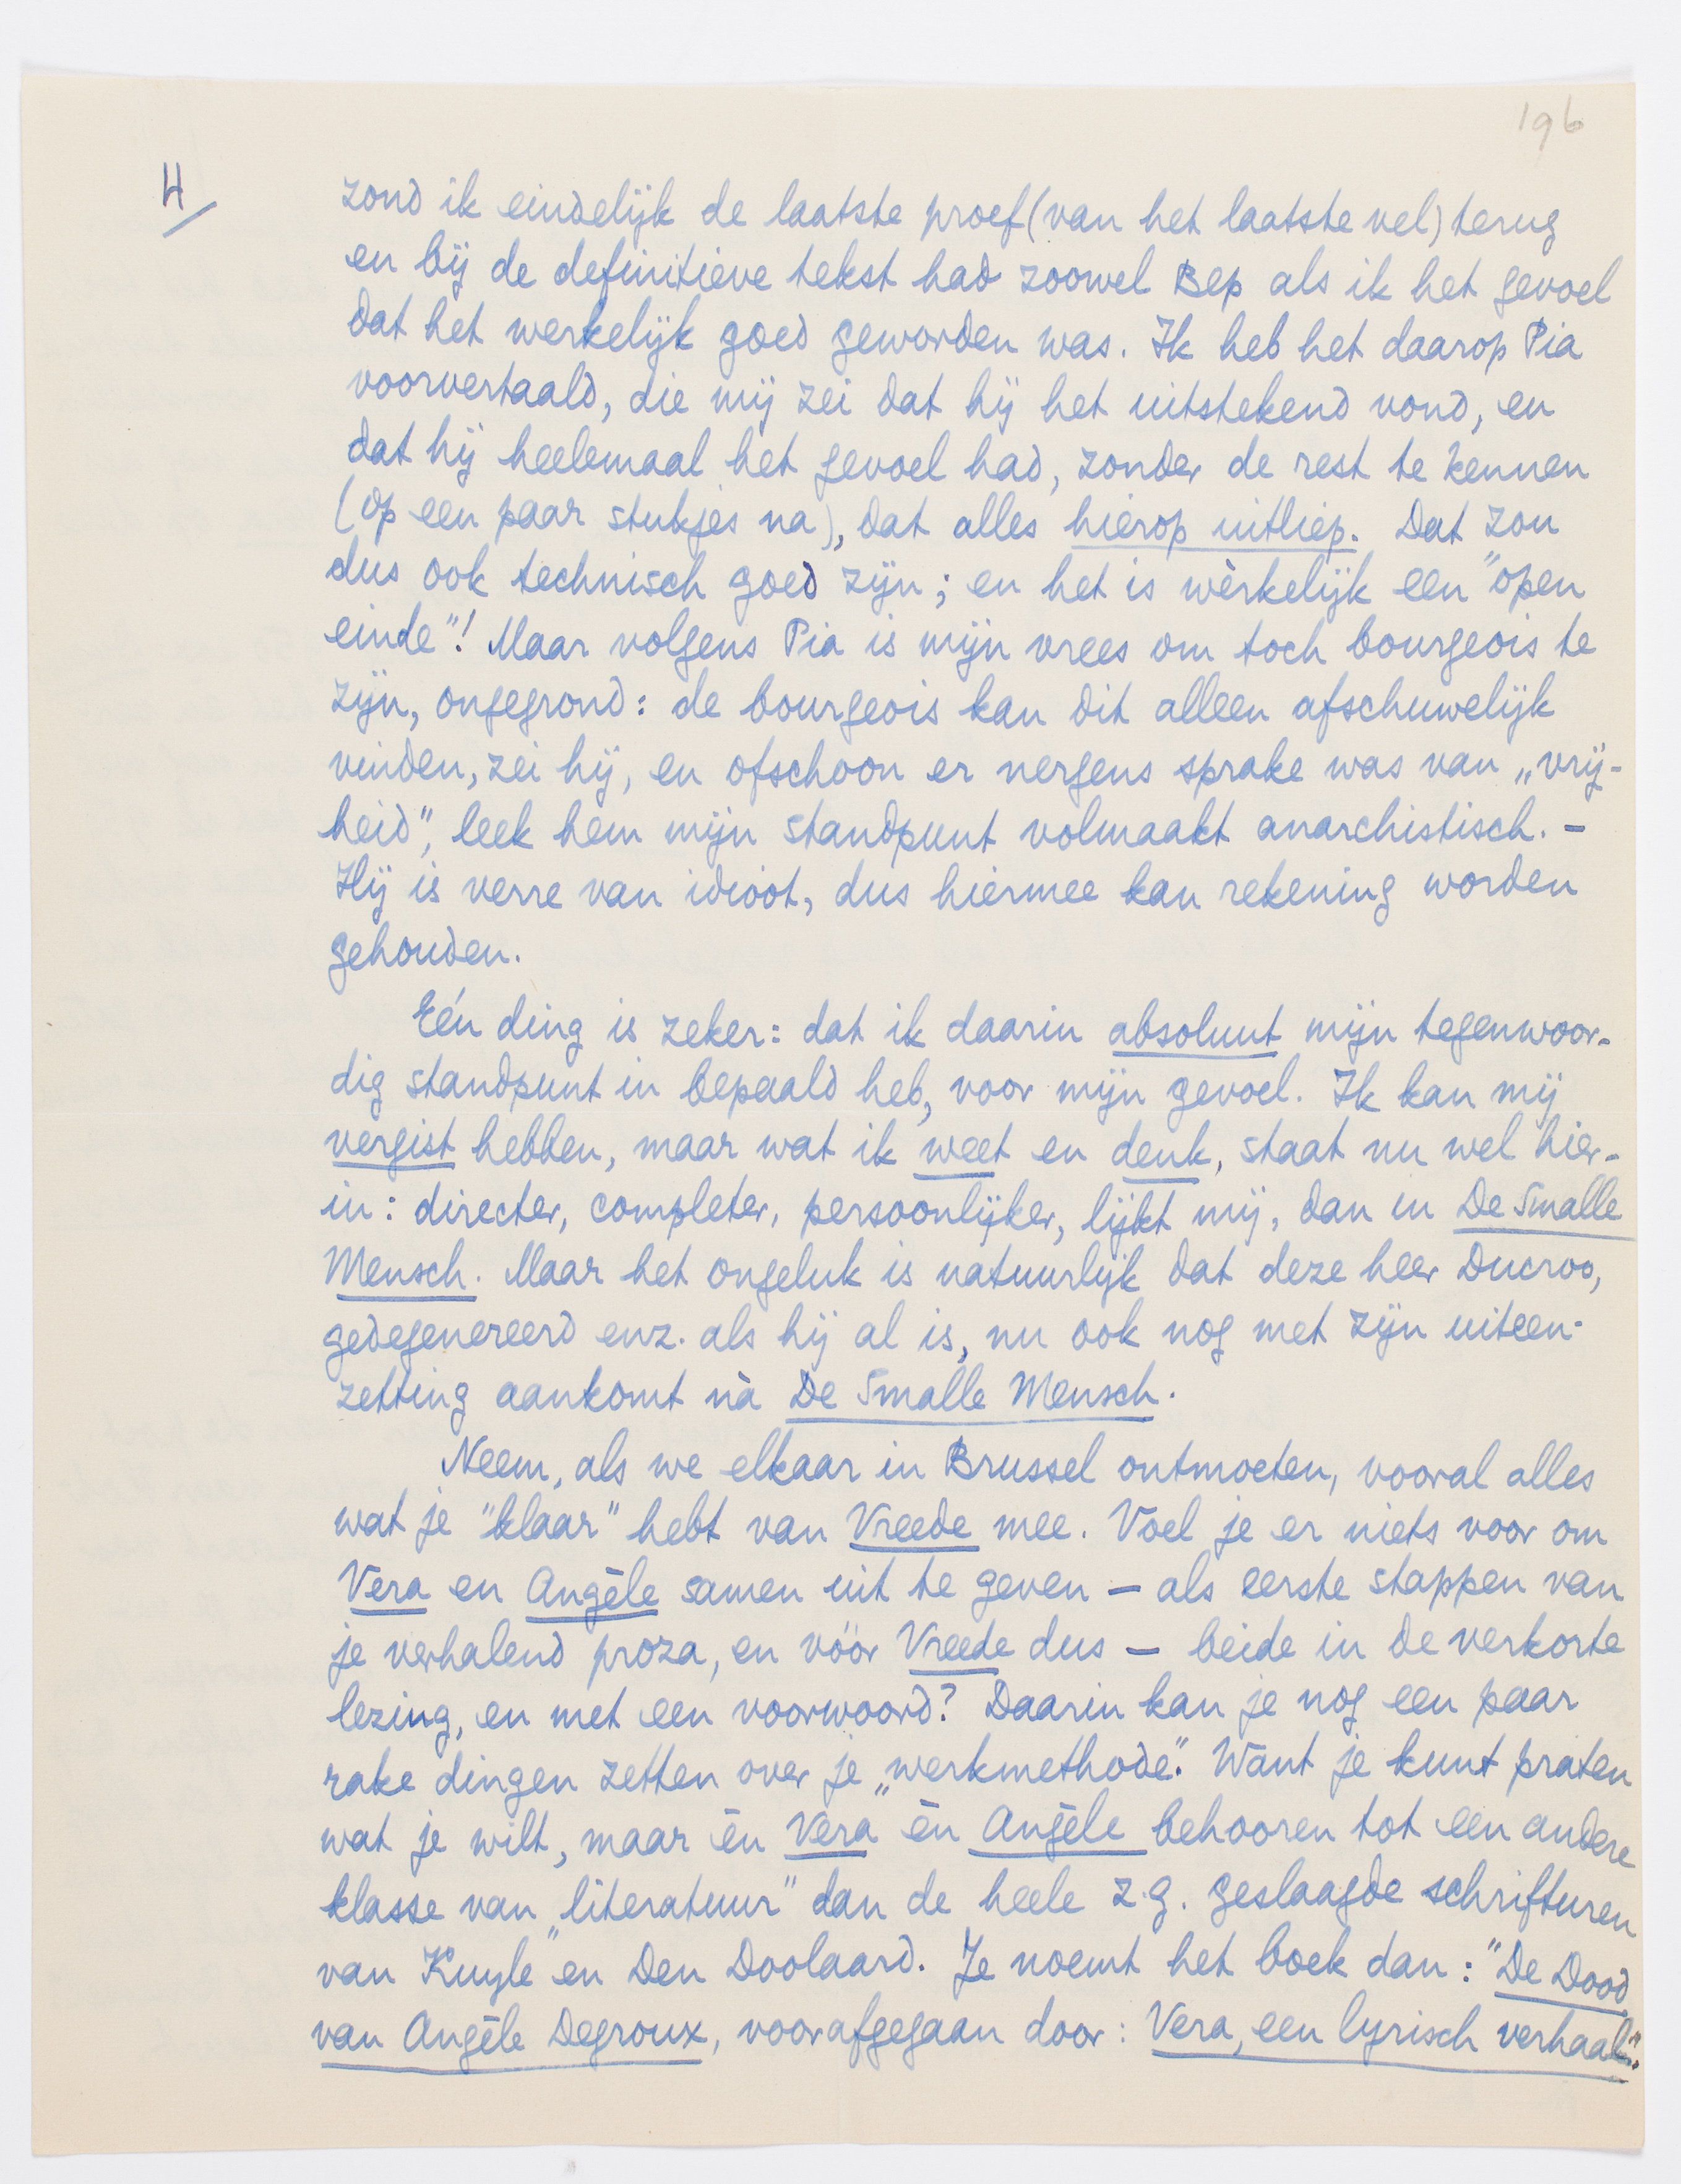 196
4/
zond ik eindelijk de laatste proef (van het laatste vel) terug
en bij de definitieve tekst had zoowel Bep als ik het gevoel
dat het werkelijk goed geworden was. Ik heb het daarop Pia
voorvertaald, die mij zei dat hij het uitstekend vond, en
dat hij heelemaal het gevoel had, zonder de rest te kennen
(op een paar stukjes na), dat alles hierop uitliep. Dat zou
dus ook technisch goed zijn; en het is wèrkelijk een "open
einde"! Maar volgens Pia is mijn vrees om toch bourgeois te
zijn, ongegrond: de bourgeois kan dit alleen afschuwelijk
vinden, zei hij, en ofschoon er nergens sprake was van „vrij-
heid", leek hem mijn standpunt volmaakt anarchistisch. –
Hij is verre van idioot, dus hiermee kan rekening worden
gehouden.
Eén ding is zeker: dat ik daarin absoluut mijn tegenwoor-
dig standpunt in bepaald heb, voor mijn gevoel. Ik kan mij
vergist hebben, maar wat ik weet en denk, staat nu wel hier-
in: directer, completer, persoonlijker, lijkt mij, dan in De Smalle
Mensch. Maar het ongeluk is natuurlijk dat deze heer Ducroo,
gedegenereerd enz. als hij al is, nu ook nog met zijn uiteen-
zetting aankomt nà De Smalle Mensch.
Neem, als we elkaar in Brussel ontmoeten, vooral alles
wat je "klaar" hebt van Vreede mee. Voel je er niets voor om
Vera en Angèle samen uit te geven – als eerste stappen van
je verhalend proza, en vóór Vreede dus – beide in de verkorte
lezing, en met een voorwoord? Daarin kan je nog een paar
rake dingen zetten over je „werkmethode". Want je kunt praten
wat je wilt, maar èn Vera èn Angèle behooren tot een andere
klasse van „literatuur" dan de heele z.g. geslaagde schrifturen
van Kuyle en Den Doolaard. Je noemt het boek dan: "De Dood
van Angèle Degroux, voorafgegaan door: Vera, een lyrisch verhaal".